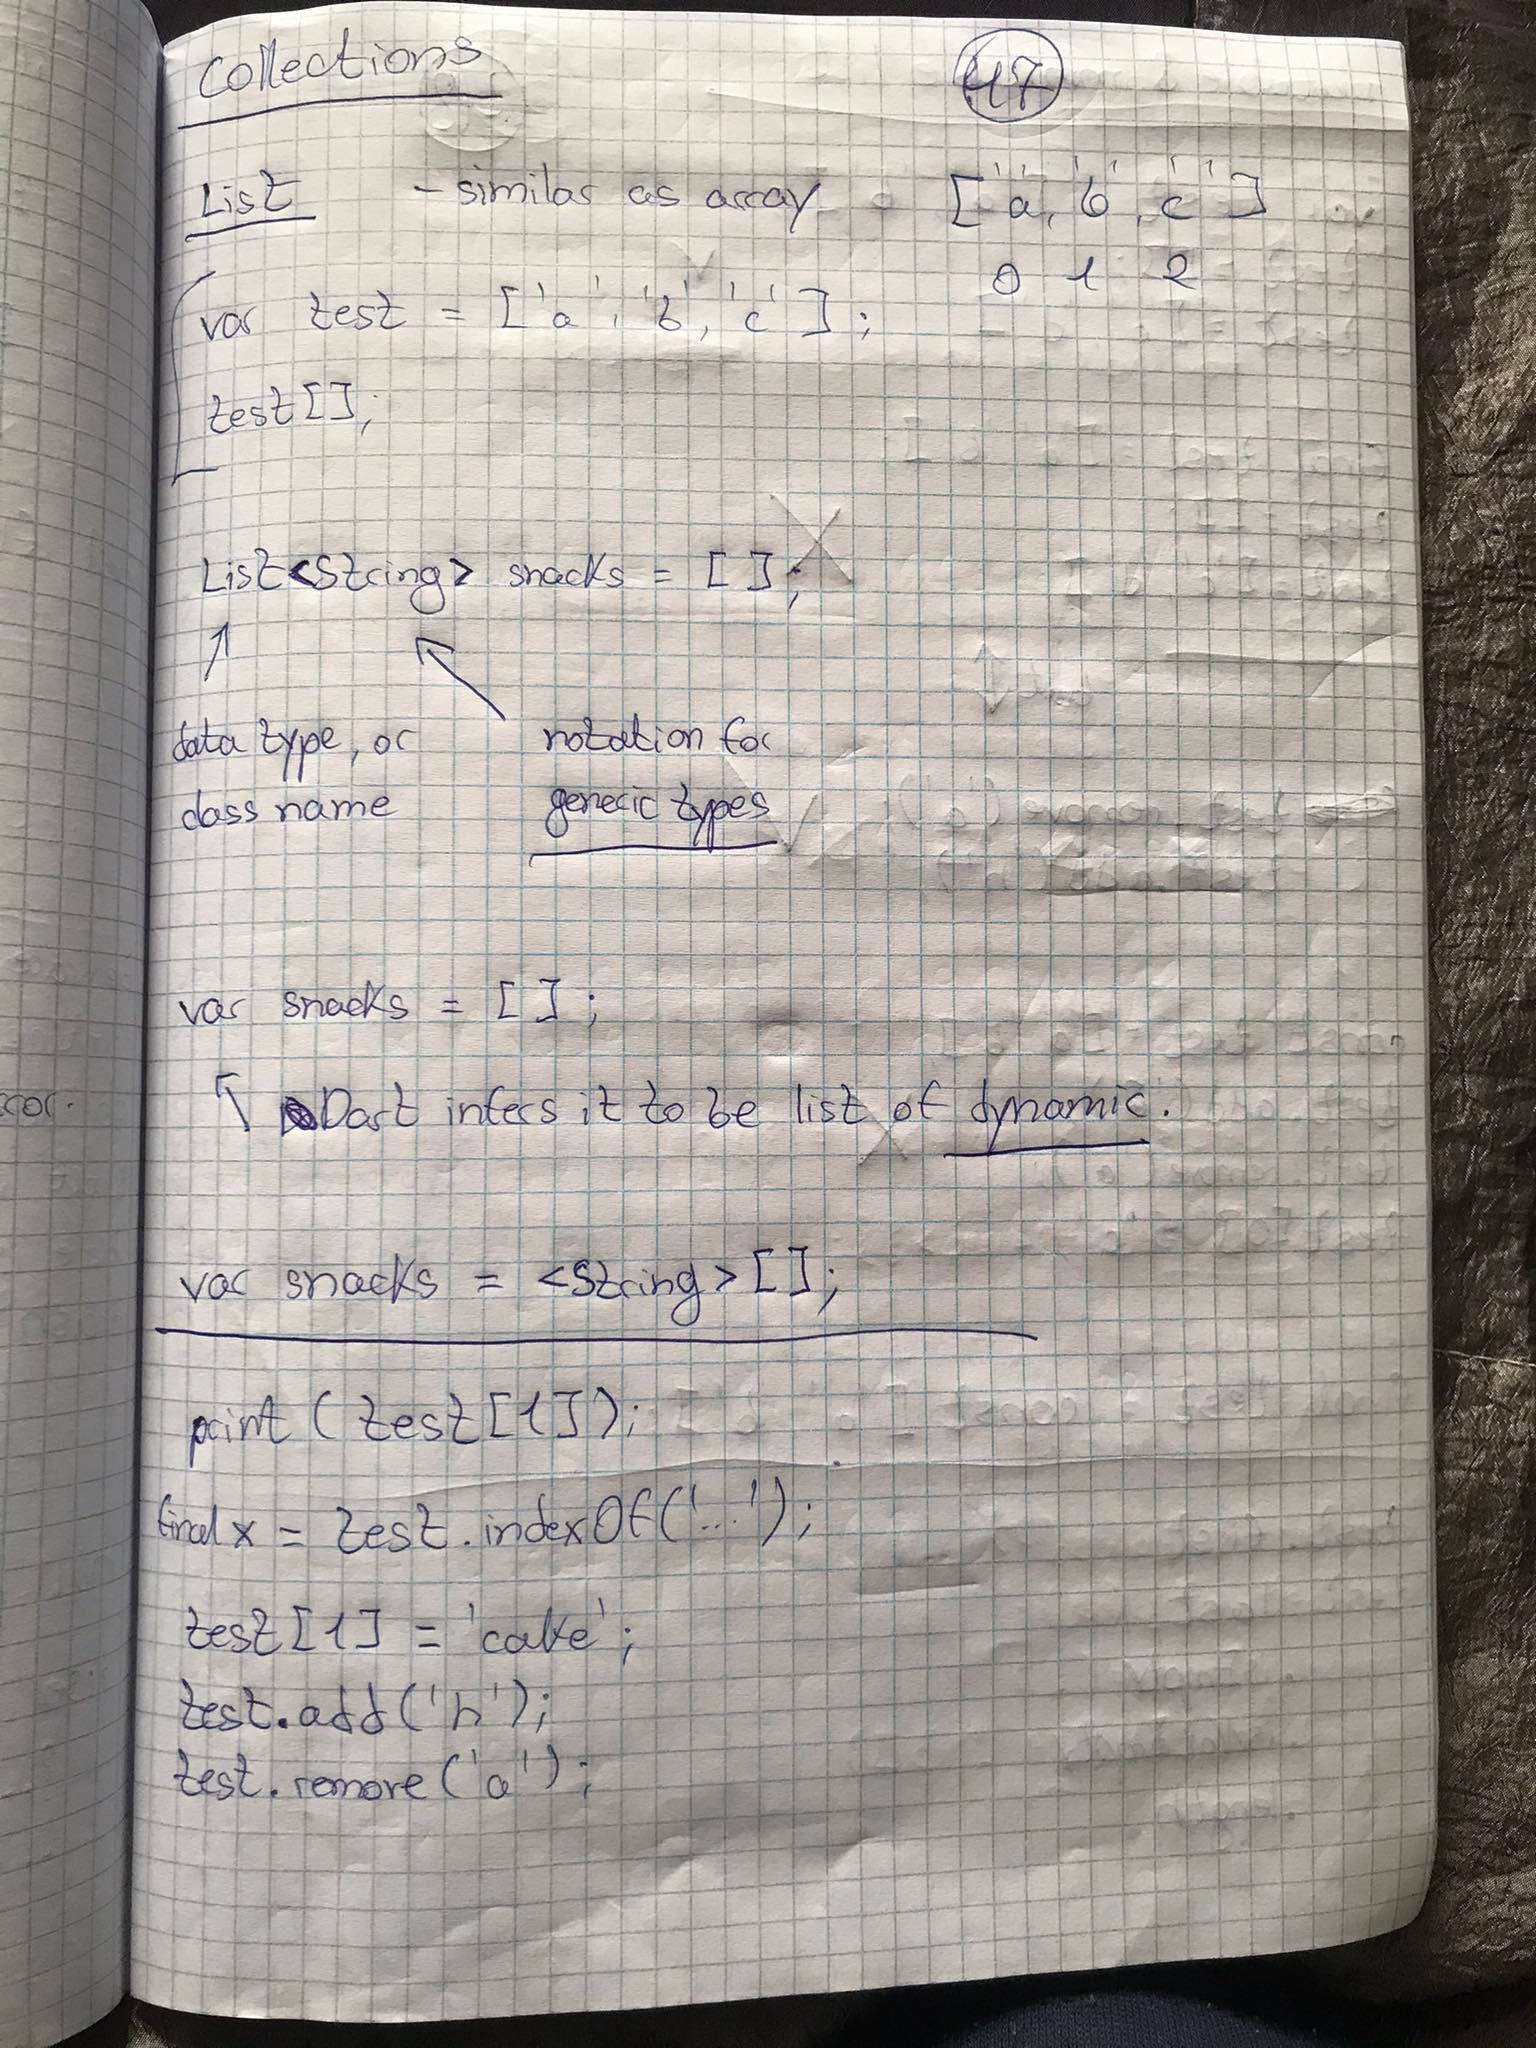 Collections
47
List - similar as array ['a', 'b', 'c']
0 1 2
var test = ['a', 'b', 'c'];
test[];
List<String> snacks = [];
data type, or
class name
notation for
generic types
var snacks = [];
Dart infers it to be list of dynamic.
var snacks = <String>[];
print (test[1]);
final x = test.indexOf('...');
test[1] = 'cake';
test.add('h');
test.remove('a');